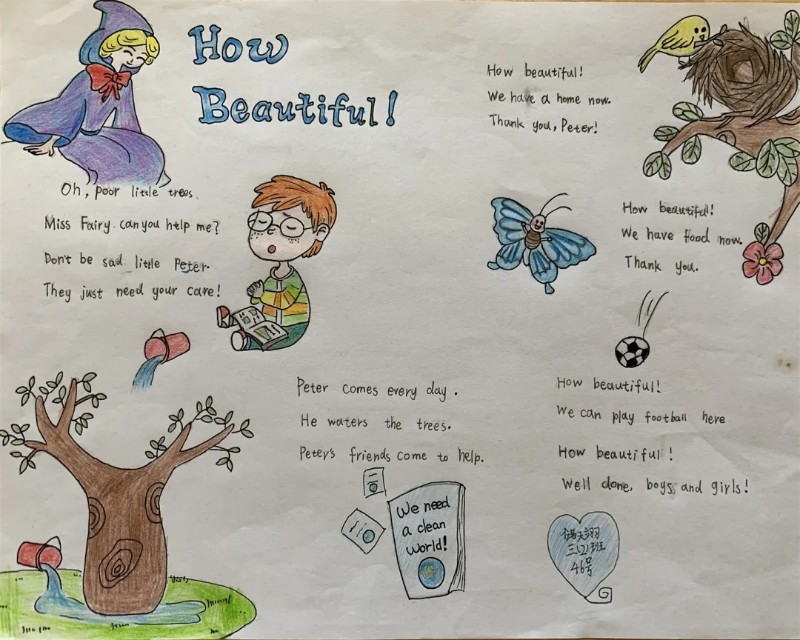 How
Beautiful!
Oh, poor little trees.
Miss Fairy. can you help me?
Don't be sad little Peter.
They just need your care!
Peter comes every day.
He waters the trees.
Peter's friends come to help.
We need
a clean
World!
How beautiful!
We have a home now.
Thank you, Peter!
How beautiful!
We have food now.
Thank you.
How beautiful!
We can play football here
How beautiful!
Well done, boys and girls!
天翔
三(2)班
46号